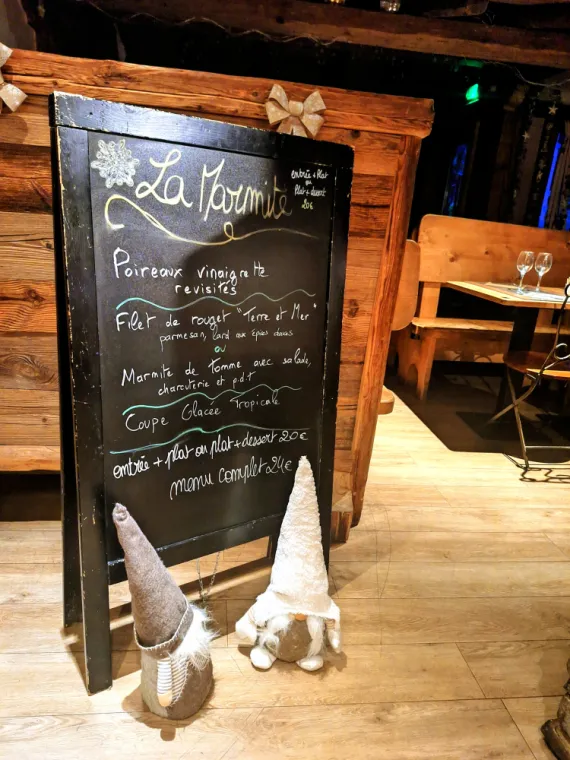 La Marmite
entrée + plat
ou
plat + dessert
20€
Poireaux vinaigrette
revisités
Filet de rouget "Terre et Mer"
parmesan, lard aux épices douces
ou
Marmite de Tomme avec salade,
charcuterie et p.d.T
Coupe Glacée Tropicale
entrée + plat ou plat + dessert 20€
menu complet 24€